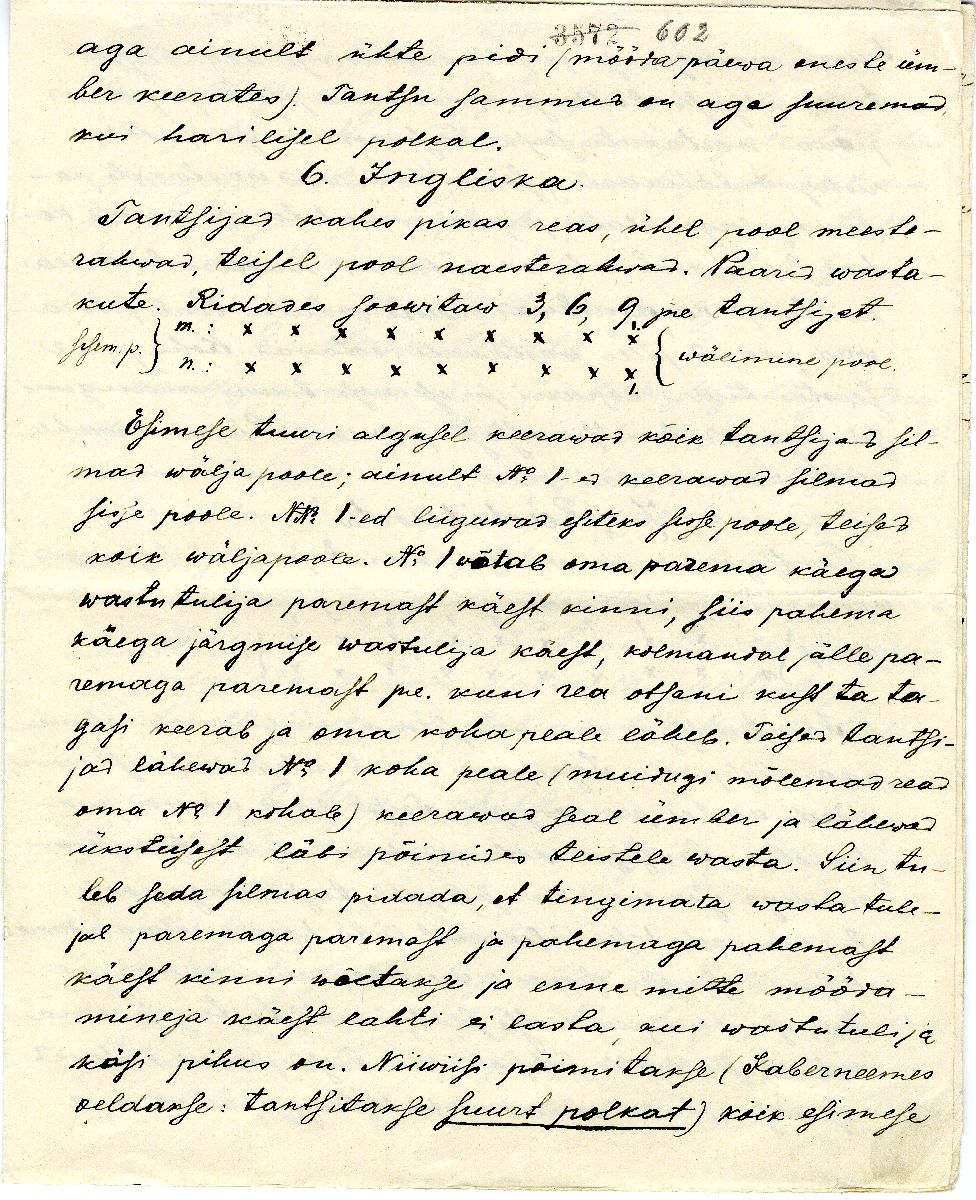 3572 602
aga ainult ühte pidi (mööda päewa eneste üm-
ber keerates). Tantsu sammud on aga suuremad,
kui harilisel polkal.
6. Ingliska.
Tantsijad kahes pikas reas, ühel pool meeste-
rahwad, teisel pool naesterahwad. Paarid wasta-
kute. Ridades soowitaw 3, 6, 9, jne tantsijat.
1.
m. : x x x x x x x x x
sisem. p. } { wälimine pool.
n. : x x x x x x x x x
1.
Esimese tuuri algusel keerawad kõik tantsijad sil-
mad wälja poole; ainult № 1-ed keerawad silmad
sisse poole. N№ 1-ed liiguwad esiteks sisse poole, teised
kõik wäljapoole. № 1 võtab oma parema käega
wastutulija paremast käest kinni, siis pahema
käega järgmise wastulija käest, kolmandal jälle pa-
remaga paremast jne. kuni rea otsani kust ta ta-
gasi keerab ja oma koha peale läheb. Teised tantsi-
jad lähewad № 1 koha peale (muidugi mõlemad read
oma № 1 kohale) keerawad seal ümber ja lähewad
üksteisest läbi põimides teistele wasta. Siin tu-
leb seda silmas pidada, et tingimata wasta tule-
jal paremaga paremast ja pahemaga pahemast
käest kinni wõetakse ja enne mitte mööda-
mineja käest lahti ei lasta, kui wastutulija
käsi pihus on. Niiwiisi põimitakse (Kaberneemes
öeldakse: tantsitakse suurt polkat) kõik esimese